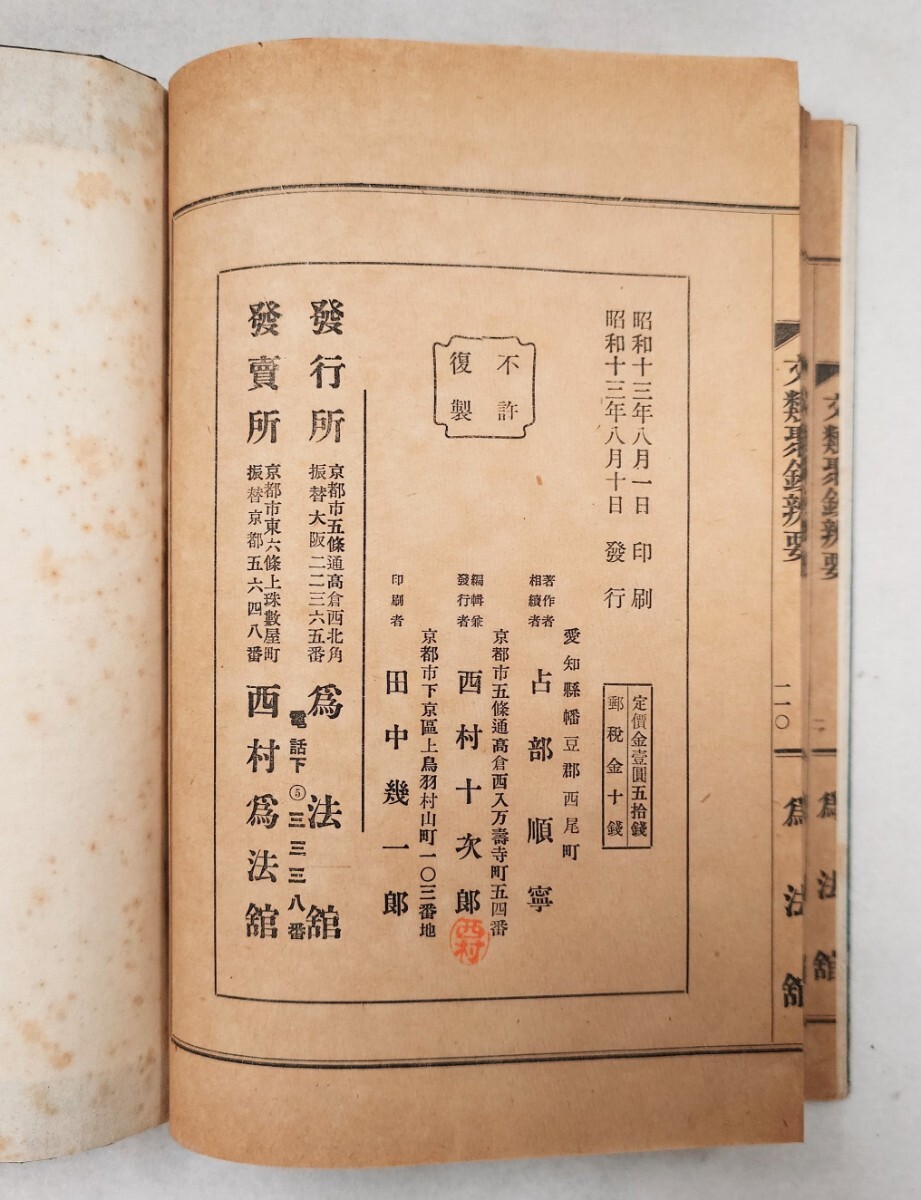 文類聚鈔辨要
二〇
爲法館
昭和十三年八月一日印刷
昭和十三年八月十日發行
定價金壹圓五拾錢
郵稅金十錢
不許
復製
愛知縣幡豆郡西尾町
著作者
相續者
占部順寧
京都市五條通高倉西入万壽寺町五四番
編輯兼
發行者
西村十次郎
西村
京都市下京區上鳥羽村山町一〇三番地
印刷者
田中幾一郎
發行所
京都市五條通高倉西北角
振替大阪二二三六五番
爲法館
電話下⑤三三三八番
發賣所
京都市東六條上珠數屋町
振替京都五六四八番
西村爲法館
文類聚鈔辨要
爲法館